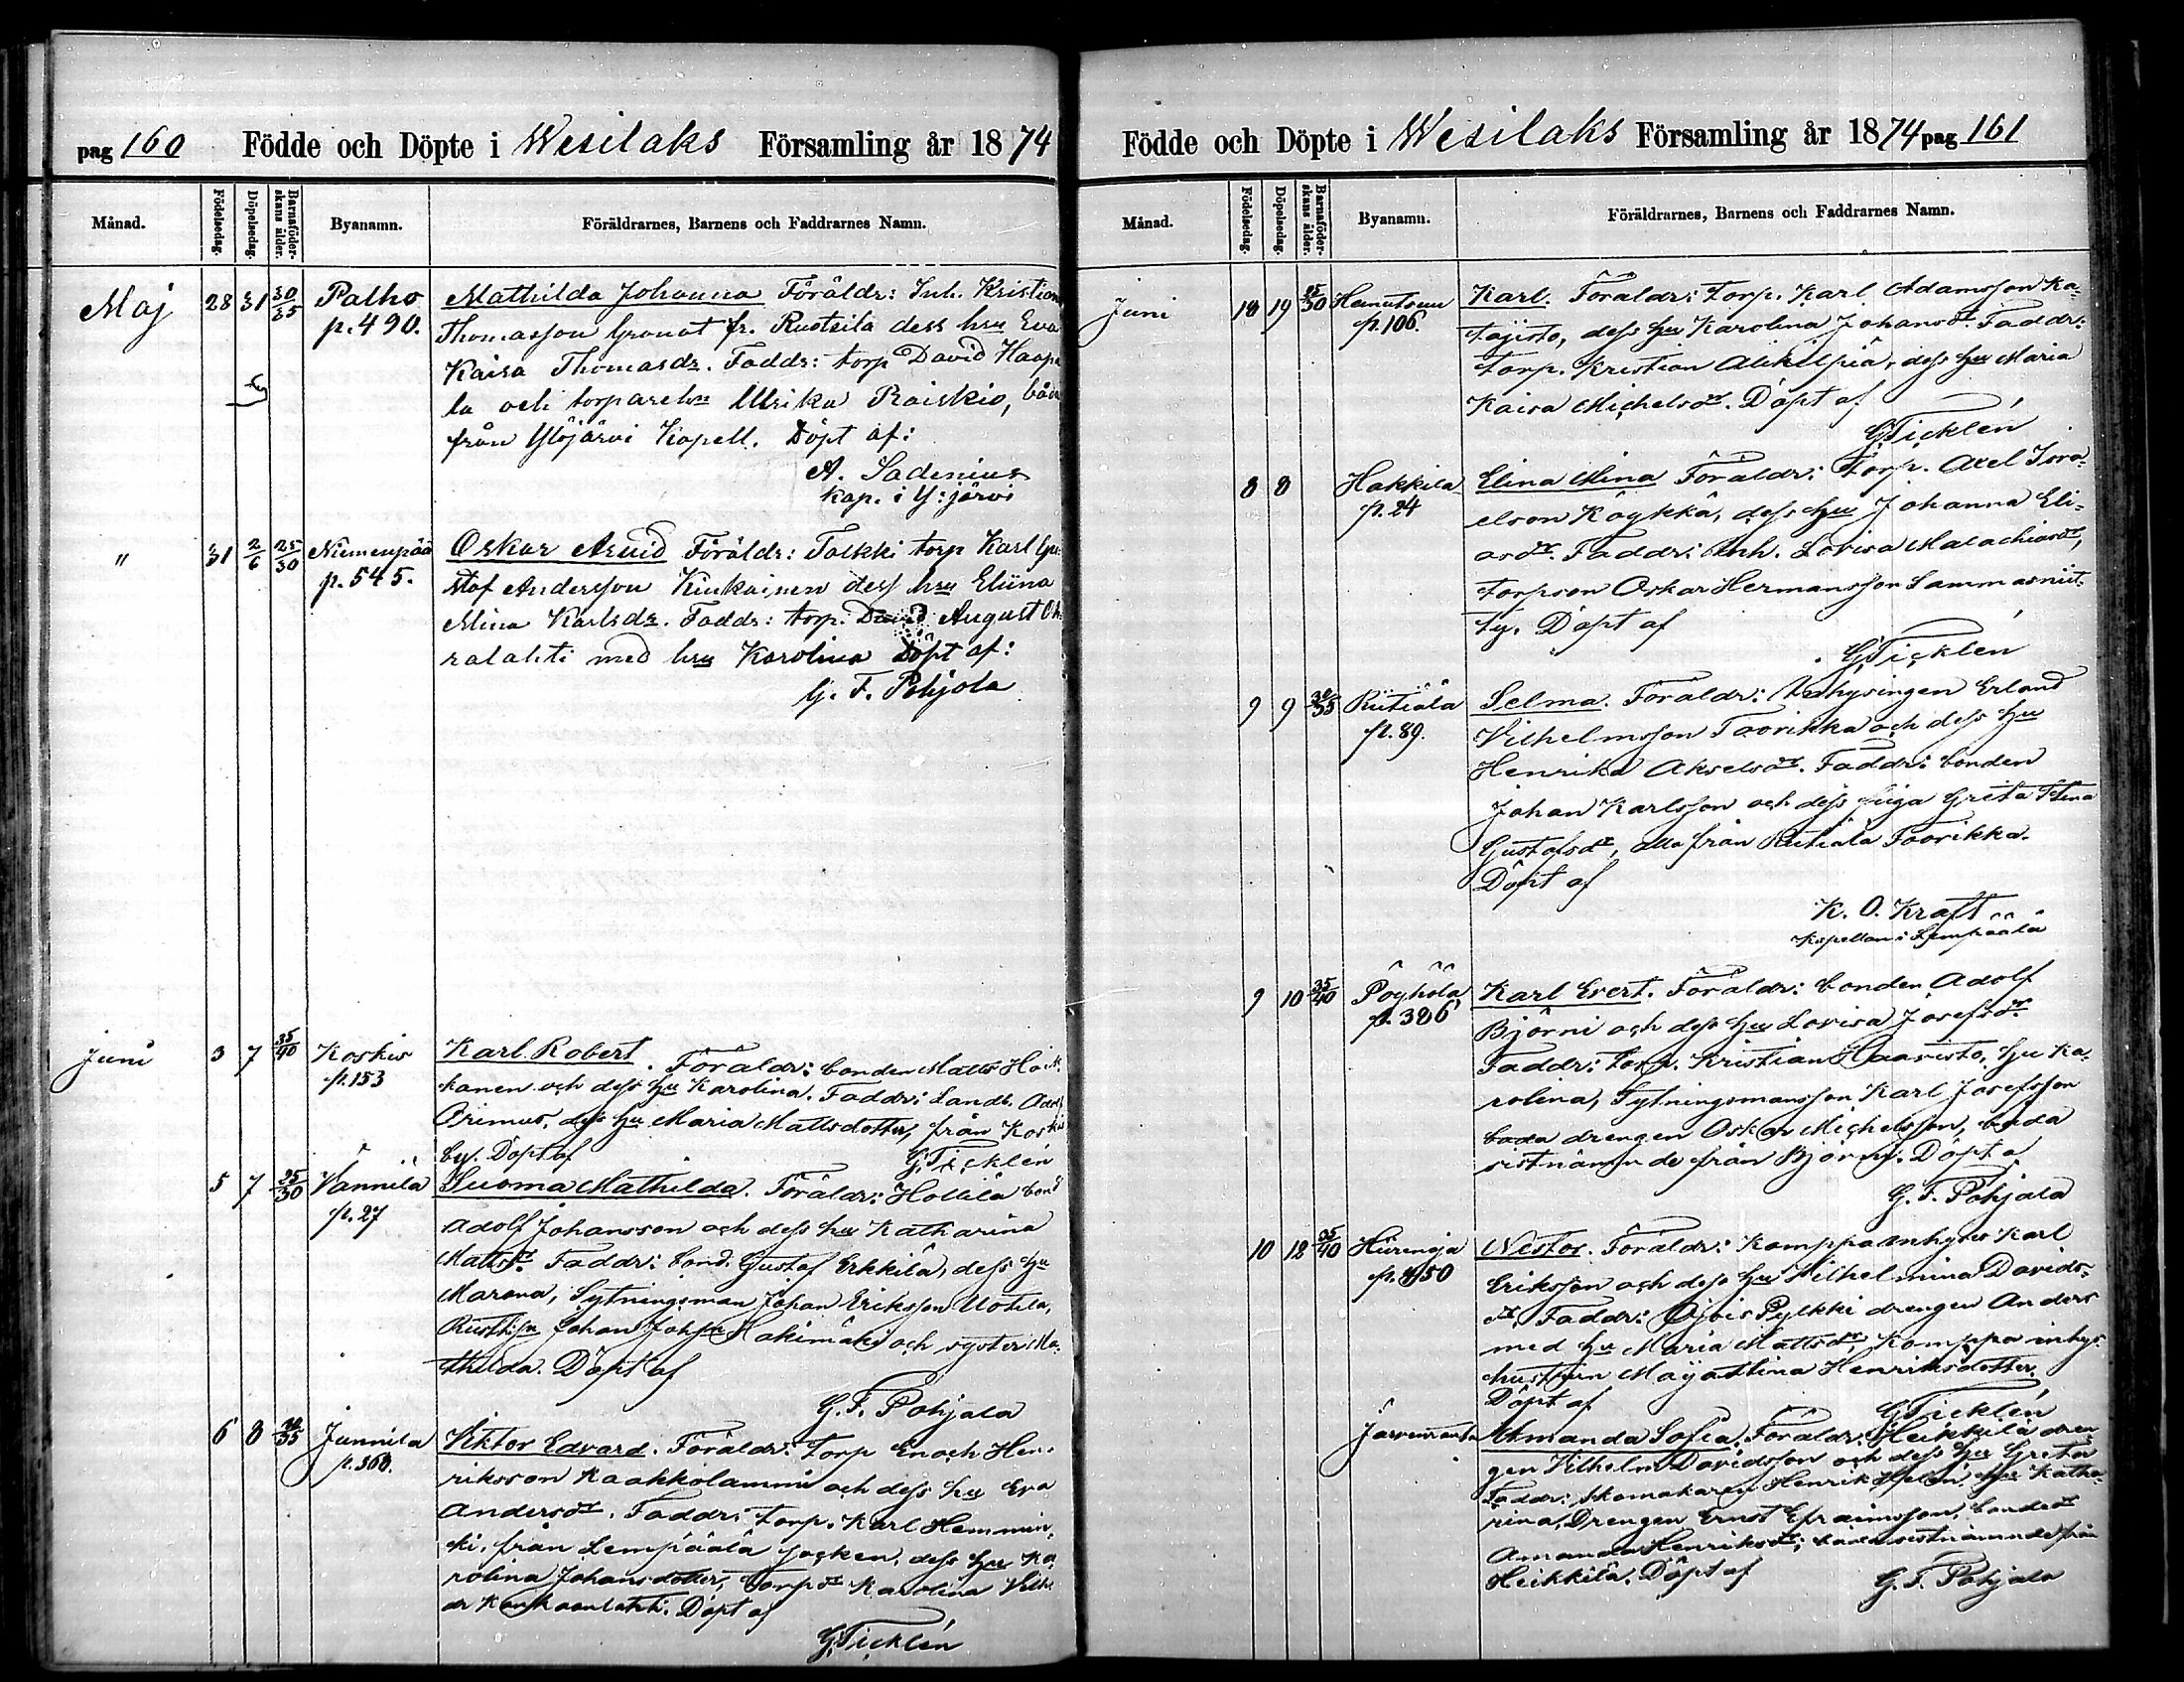 pag 160 Födde och Döpte i Wesilaks Församling år 1874
Månad. Födelsedag. Döpelsedag. Barnaföderskans ålder. Byanamn. Föräldrarnes, Barnens och Faddrarnes Namn.
Maj 28 31 30/35 Palho Mathilda Johanna Föräldr: Inh. Kristian
p. 490. Thomasson Granat fr. Rustsila dess hru Eva
Kaisa Thomasdr. Faddr: torp David Haapa
la och torparehn Ulrika Raiskio, båda
från Ylöjärvi Kapell. Döpt af:
A. Sadenius
Kap. i Y:järvi
" 31 2/6 25/30 Niemenpää Oskar Arvid Föräldr: Tolkki torp Karl Gu
p. 545. staf Andersson Kiukainen dess hru Eliina
Mina Karlsdr. Faddr: torp. David August
ralahti med hru Karolina Döpt af:
G. F. Pohjola
Juni 3 7 35/40 Koskis Karl Robert. Föräldr: bonden Matts
p. 153 kanen och dess hu Karolina. Faddr: Landb. Adolf
Primus, dess hu Maria Mattsdotter, från Koskis
by. Döpt af G. Ticklén
5 7 25/30 Vännilä Suoma Mathilda. Föräldr: Hollila bond
p. 27 Adolf Johansson och dess hu Katharina
Mattsdr. Faddr: bond. Gustaf Erkkilä, dess hu
Marana, Sytningsman Johan Eriksson Uotila,
Rusth:sn Johan Johsn Hakimäki och syster Ma-
thilda. Döpt af
G. F. Pohjala
6 8 30/35 Junnila Viktor Edvard. Föräldr: Torp Enoch Hen-
p. 368. riksson Kaakkolammi och dess hu Eva
Andersdr. Faddr: torp. Karl Hemmin-
ki, från Lempäälä socken, dess hu Ka
rolina Johansdotter, torpdr Karolina Vilh
dr Kankaanlahti. Döpt af
G. Ticklén
Födde och Döpte i Wesilaks Församling år 1874 pag 161
Månad. Födelsedag. Döpelsedag. Barnaföderskans ålder. Byanamn. Föräldrarnes, Barnens och Faddrarnes Namn.
Juni 18 19 25/30 Karl. Föräldr: Torp. Karl Adamsson Ka-
p. 106. tajisto, dess hu Karolina Johansdr. Faddr:
Torp. Kristian Alikilpiä, dess hu Maria
Kaisa Michelsdr. Döpt af
G. Ticklén
8 8 Hakkila Elina Mina Föräldr: Torp. Axel Isra-
p. 24 elson Köykkä, dess hu Johanna Eli-
asdr. Faddr: Inh. Lovisa Malachiasdr,
torpson Oskar Hermansson Sammasniit-
ty. Döpt af
G. Ticklén
9 9 30/35 Rietiälä Selma. Föräldr: Inhysingen Erland
p. 89. Vilhelmsson Toorikka och dess hu
Henrika Akselsdr. Faddr: bonden
Johan Karlsson och dess piga Greta Stina
Gustafsdr, alla från Rietiala Toorikka.
Döpt af
K. O. Kraft
Kapellan i Lempäälä
9 10 35/40 Pöyhölä Karl Evert. Föräldr: bonden Adolf
p. 386 Björni och dess hu Lovisa Josefsdr.
Faddr: torp. Kristian Haavisto, hu Ka-
rolina, Sytningsmansson Karl Josefsson
bada drengen Oskar Michelsson, bada
sistnämnde från Björni. Döpt a
G. F. Pohjala
10 12 35/40 Hiirenoja Nestor. Föräldr: Komppa inhyses Karl
p. 450 Eriksson och dess hu Vilhelmina Davids-
dr. Faddr: Pylkki drengen Anders
med hu Maria Mattsdr, Komppa inhys.
hustrun Maja Stina Henriksdotter.
Döpt af G. Ticklén
Järvenranta Amanda Sofia. Föräldr: Heikkilä dren
gen Vilhelm Davidsson och dess hu Greta
Faddr: skomakaren Henrik Helen, hu Katha-
rina, Drengen Ernst Efraimsson, bondedr
Amanda Henriksdr; båda sistnämnde från
Heikkilä. Döpt af G. F. Pohjala